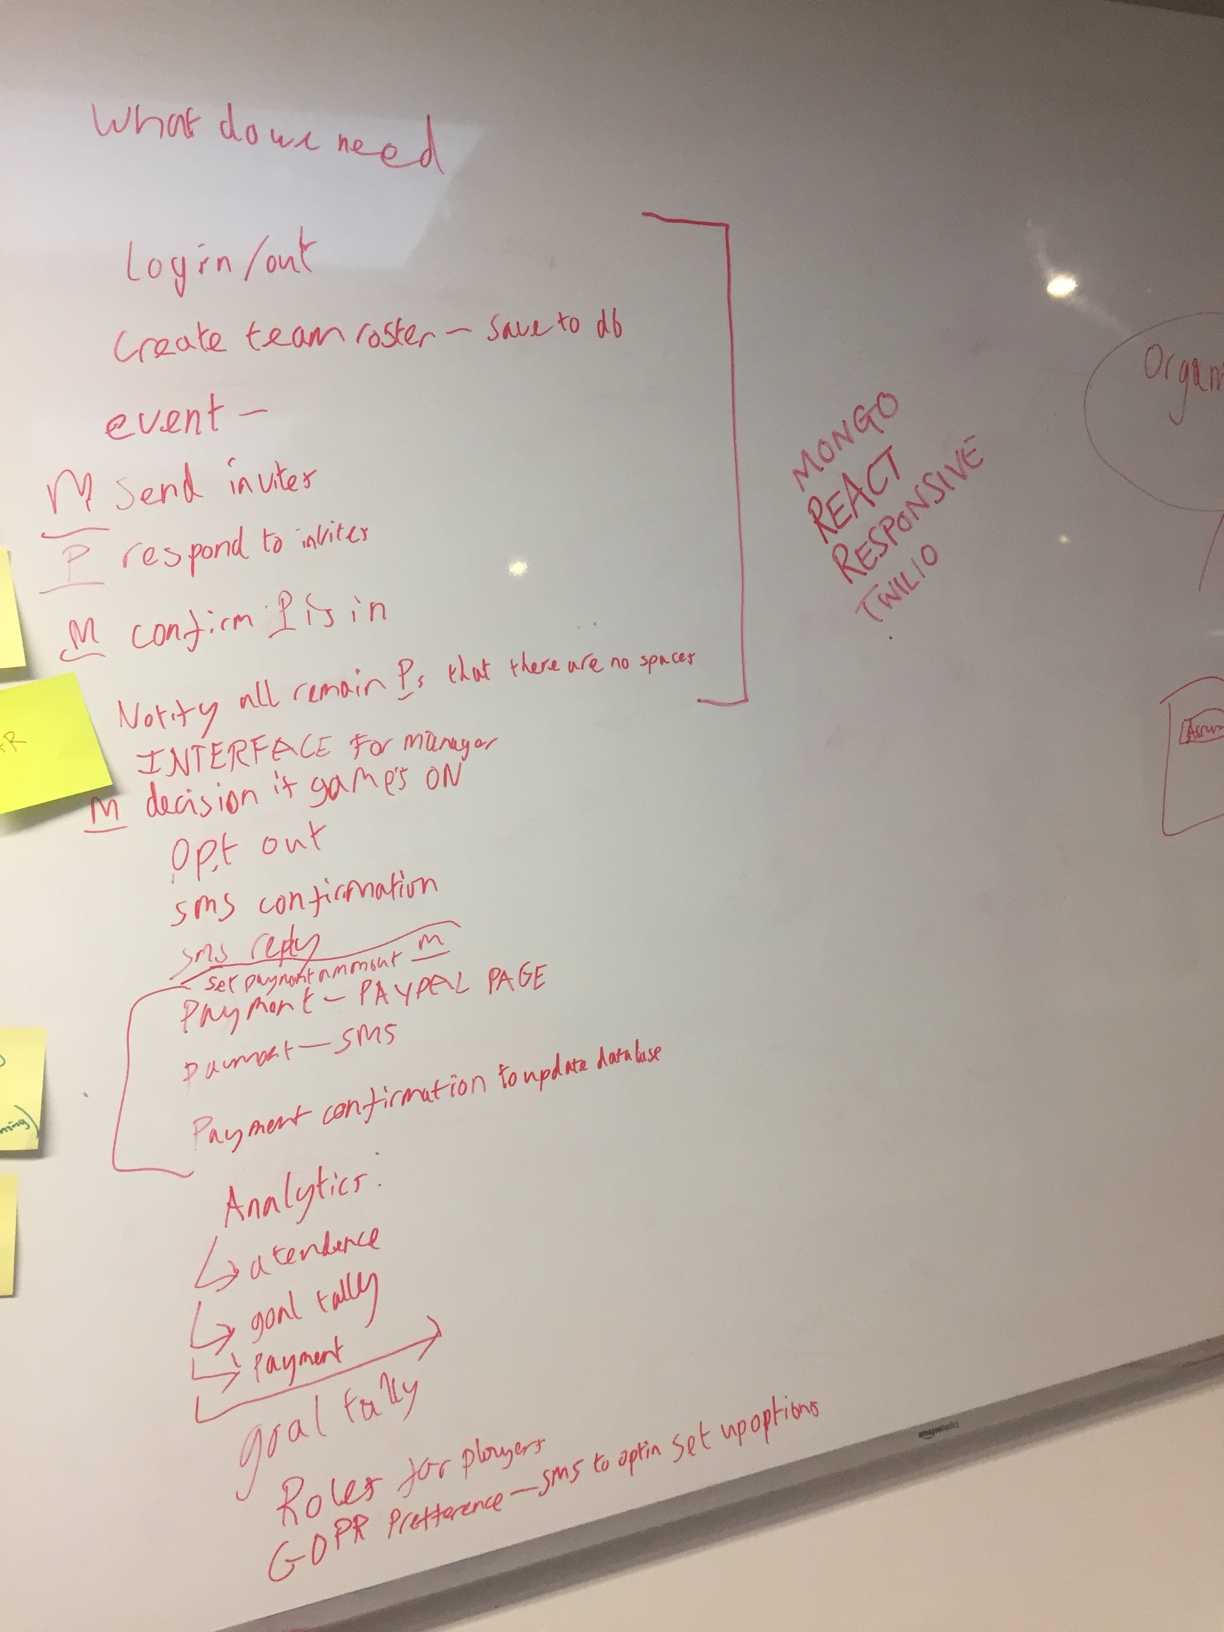 What do we need
Login/out
Create team roster - save to db
event -
M send invites
P respond to invites
M confirm P is in
Notify all remain Ps that there are no spaces
INTERFACE For manager
M decision if game's ON
Opt out
SMS confirmation
SMS reply
set payment ammount M
Payment - PAYPAL PAGE
Payment - SMS
Payment confirmation to update database
Analytics:
atendence
goal tally
Payment
goal tally
Roles for players
GDPR Prefference - SMS to optin set up options
MONGO
REACT
RESPONSIVE
TWILIO
Organ
ming)
amazonbasics